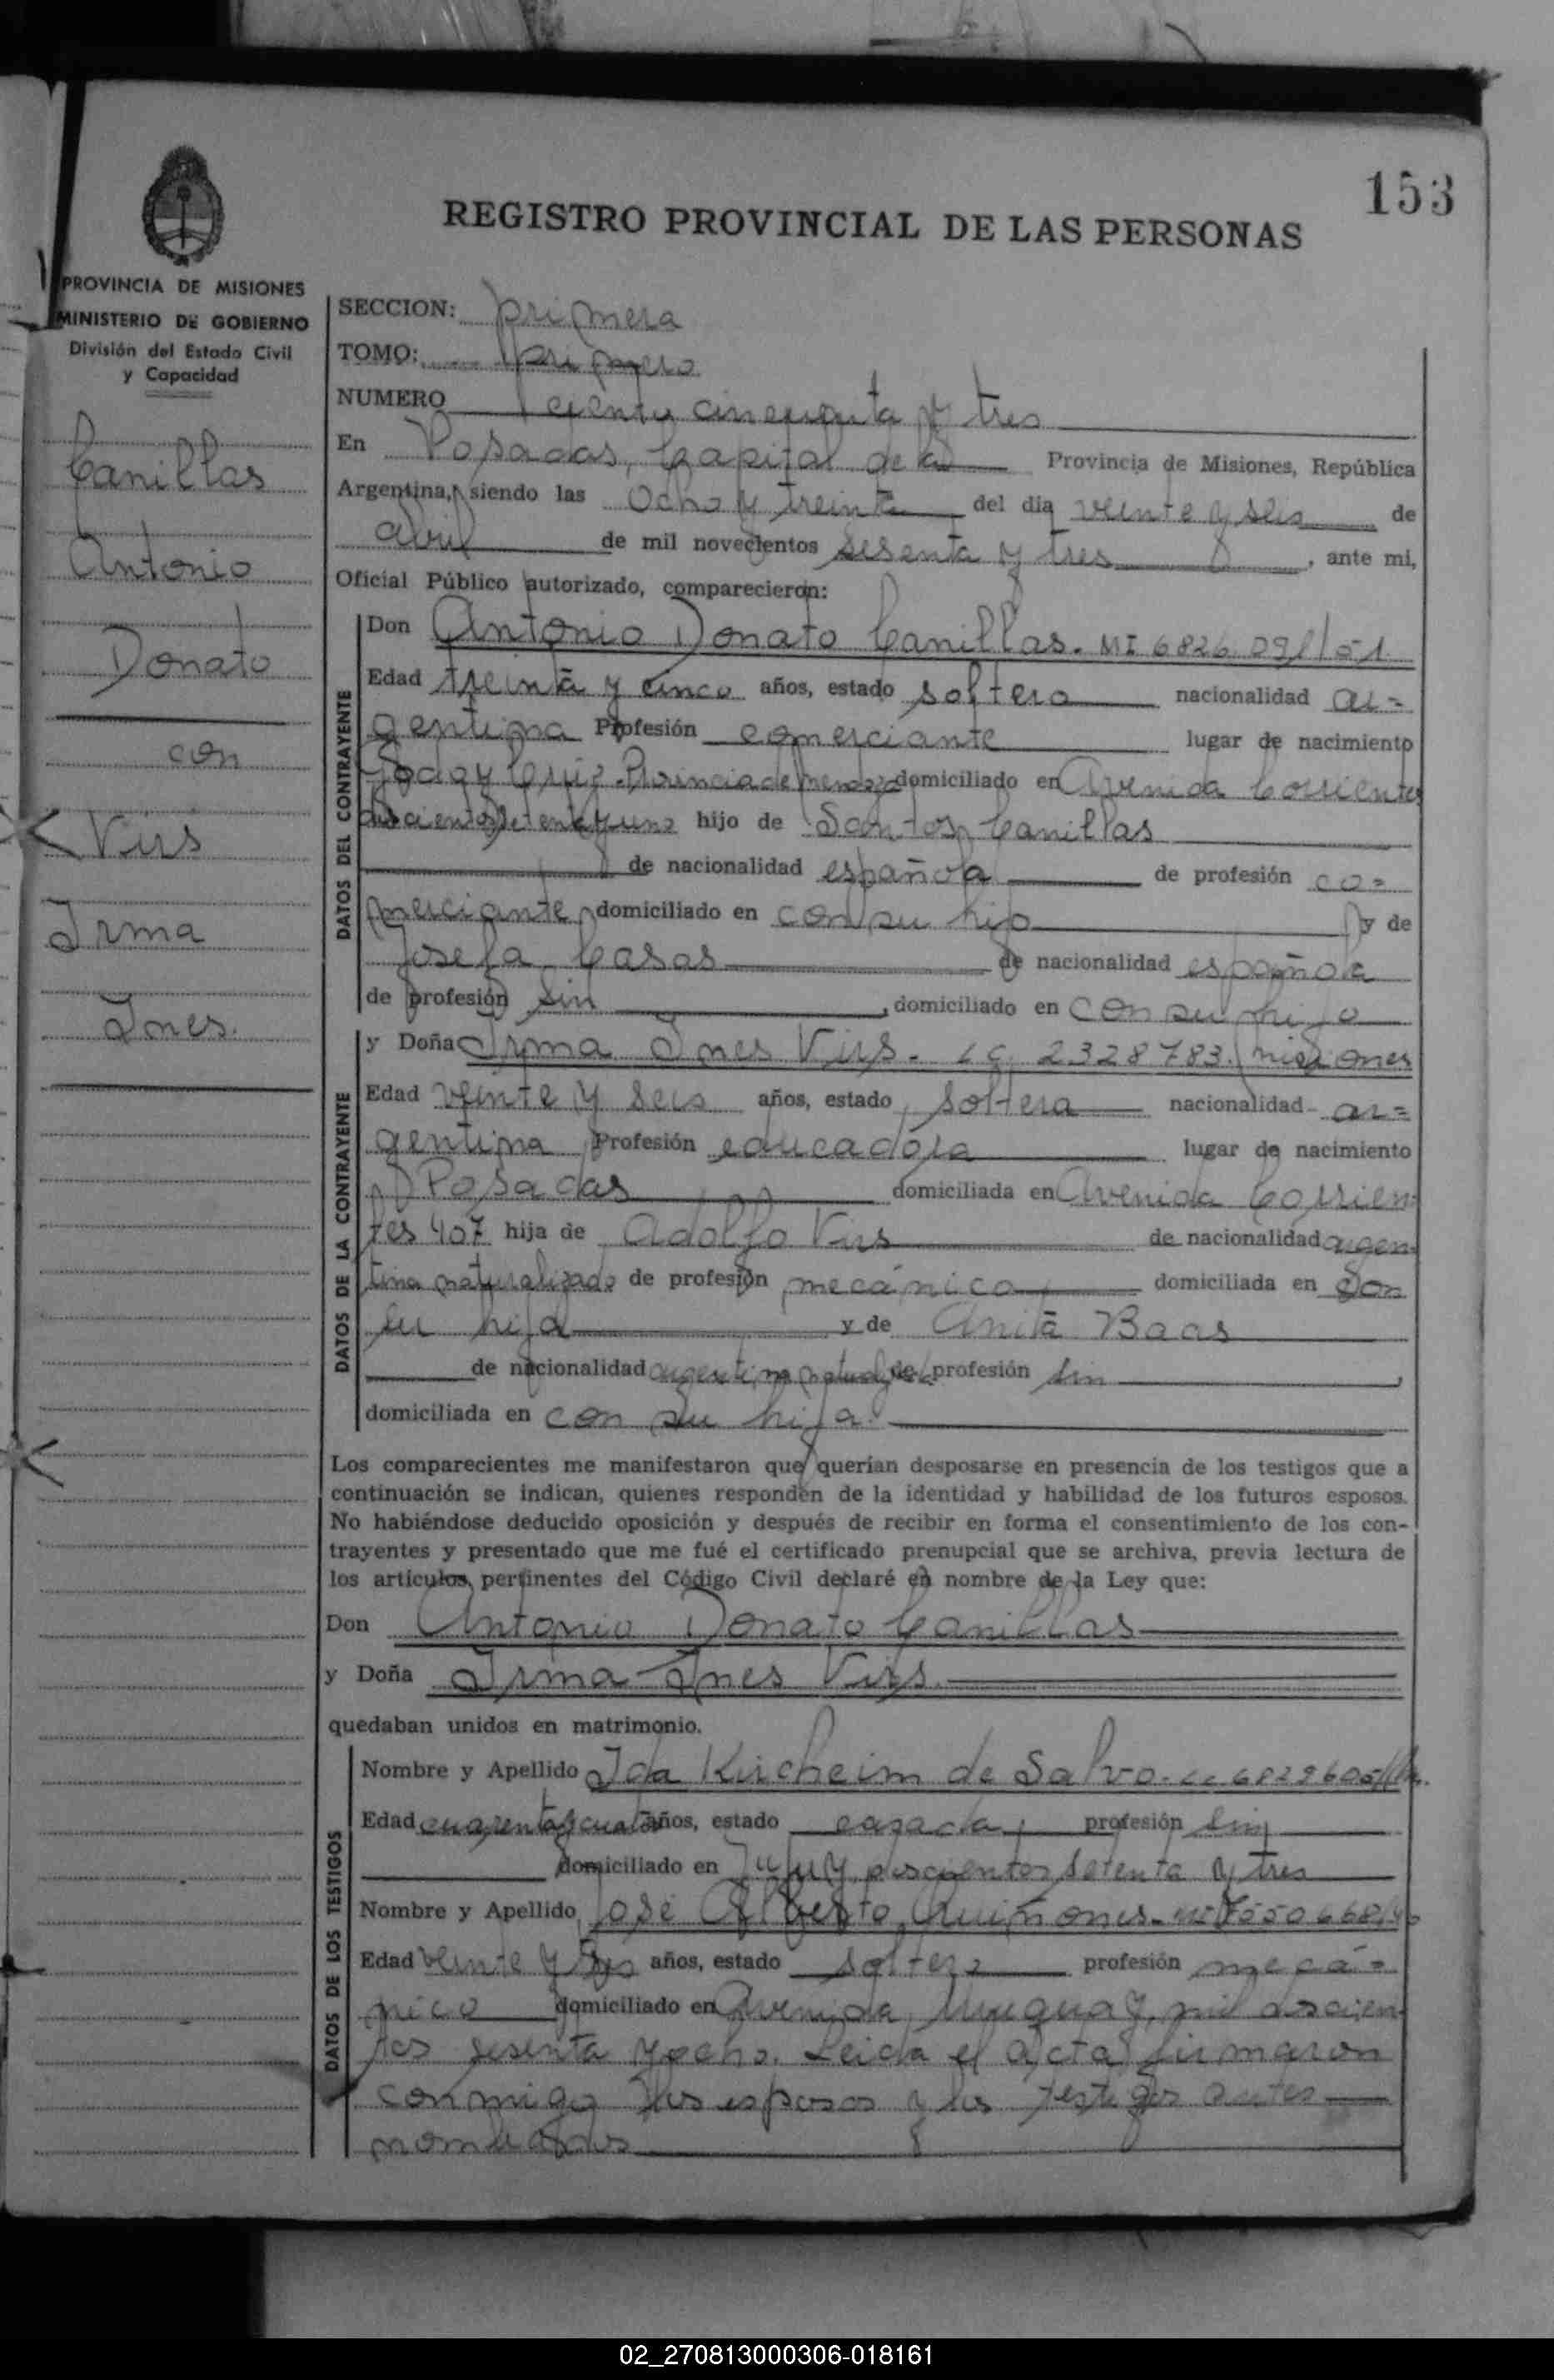 153
REGISTRO PROVINCIAL DE LAS PERSONAS
PROVINCIA DE MISIONES
MINISTERIO DE GOBIERNO
División del Estado Civil
y Capacidad
Canillas
Antonio
Donato
con
Virs
Irma
Ines.
SECCION: primera
TOMO: primero
NUMERO ciento cincuenta y tres
En Posadas, Capital de la Provincia de Misiones, República
Argentina, siendo las Ocho y treinta del día veinte y seis de
abril de mil novecientos sesenta y tres, ante mi,
Oficial Público autorizado, comparecieron:
DATOS DEL CONTRAYENTE
Don Antonio Donato Canillas. MI 6826
Edad treinta y cinco años, estado soltero nacionalidad ar=
gentina Profesión comerciante lugar de nacimiento
Godoy Cruz. Provincia de Mendoza domiciliado en Avenida Corrientes
doscientos setenta y uno hijo de Santos Canillas
de nacionalidad española de profesión co=
merciante domiciliado en con su hijo y de
Josefa Casas de nacionalidad española
de profesión sin, domiciliado en con su hijo
DATOS DE LA CONTRAYENTE
y Doña Irma Ines Virs. LC 2328783. Misiones
Edad veinte y seis años, estado soltera nacionalidad ar=
gentina Profesión educadora lugar de nacimiento
Posadas domiciliada en Avenida Corrien-
tes 407 hija de Adolfo Virs de nacionalidad argen-
tina naturalizado de profesión mecánico, domiciliada en con
su hija y de Anita Baas
de nacionalidad argentina naturalizada de profesión sin,
domiciliada en con su hija.
Los comparecientes me manifestaron que querían desposarse en presencia de los testigos que a
continuación se indican, quienes responden de la identidad y habilidad de los futuros esposos.
No habiéndose deducido oposición y después de recibir en forma el consentimiento de los con-
trayentes y presentado que me fué el certificado prenupcial que se archiva, previa lectura de
los artículos pertinentes del Código Civil declaré en nombre de la Ley que:
Don Antonio Donato Canillas
y Doña Irma Ines Virs.
quedaban unidos en matrimonio.
DATOS DE LOS TESTIGOS
Nombre y Apellido Ida Kircheim de Salvo. LC
Edad cuarenta y cuatro años, estado casada, profesión sin,
domiciliado en Jujuy doscientos setenta y tres
Nombre y Apellido José Alberto Quiñones. MI
Edad veinte y tres años, estado soltero profesión mecá=
nico domiciliado en Avenida Uruguay, mil doscien-
tos sesenta y ocho. Leida el acta firmaron
conmigo los esposos y los testigos antes
nombrados
02_270813000306-018161